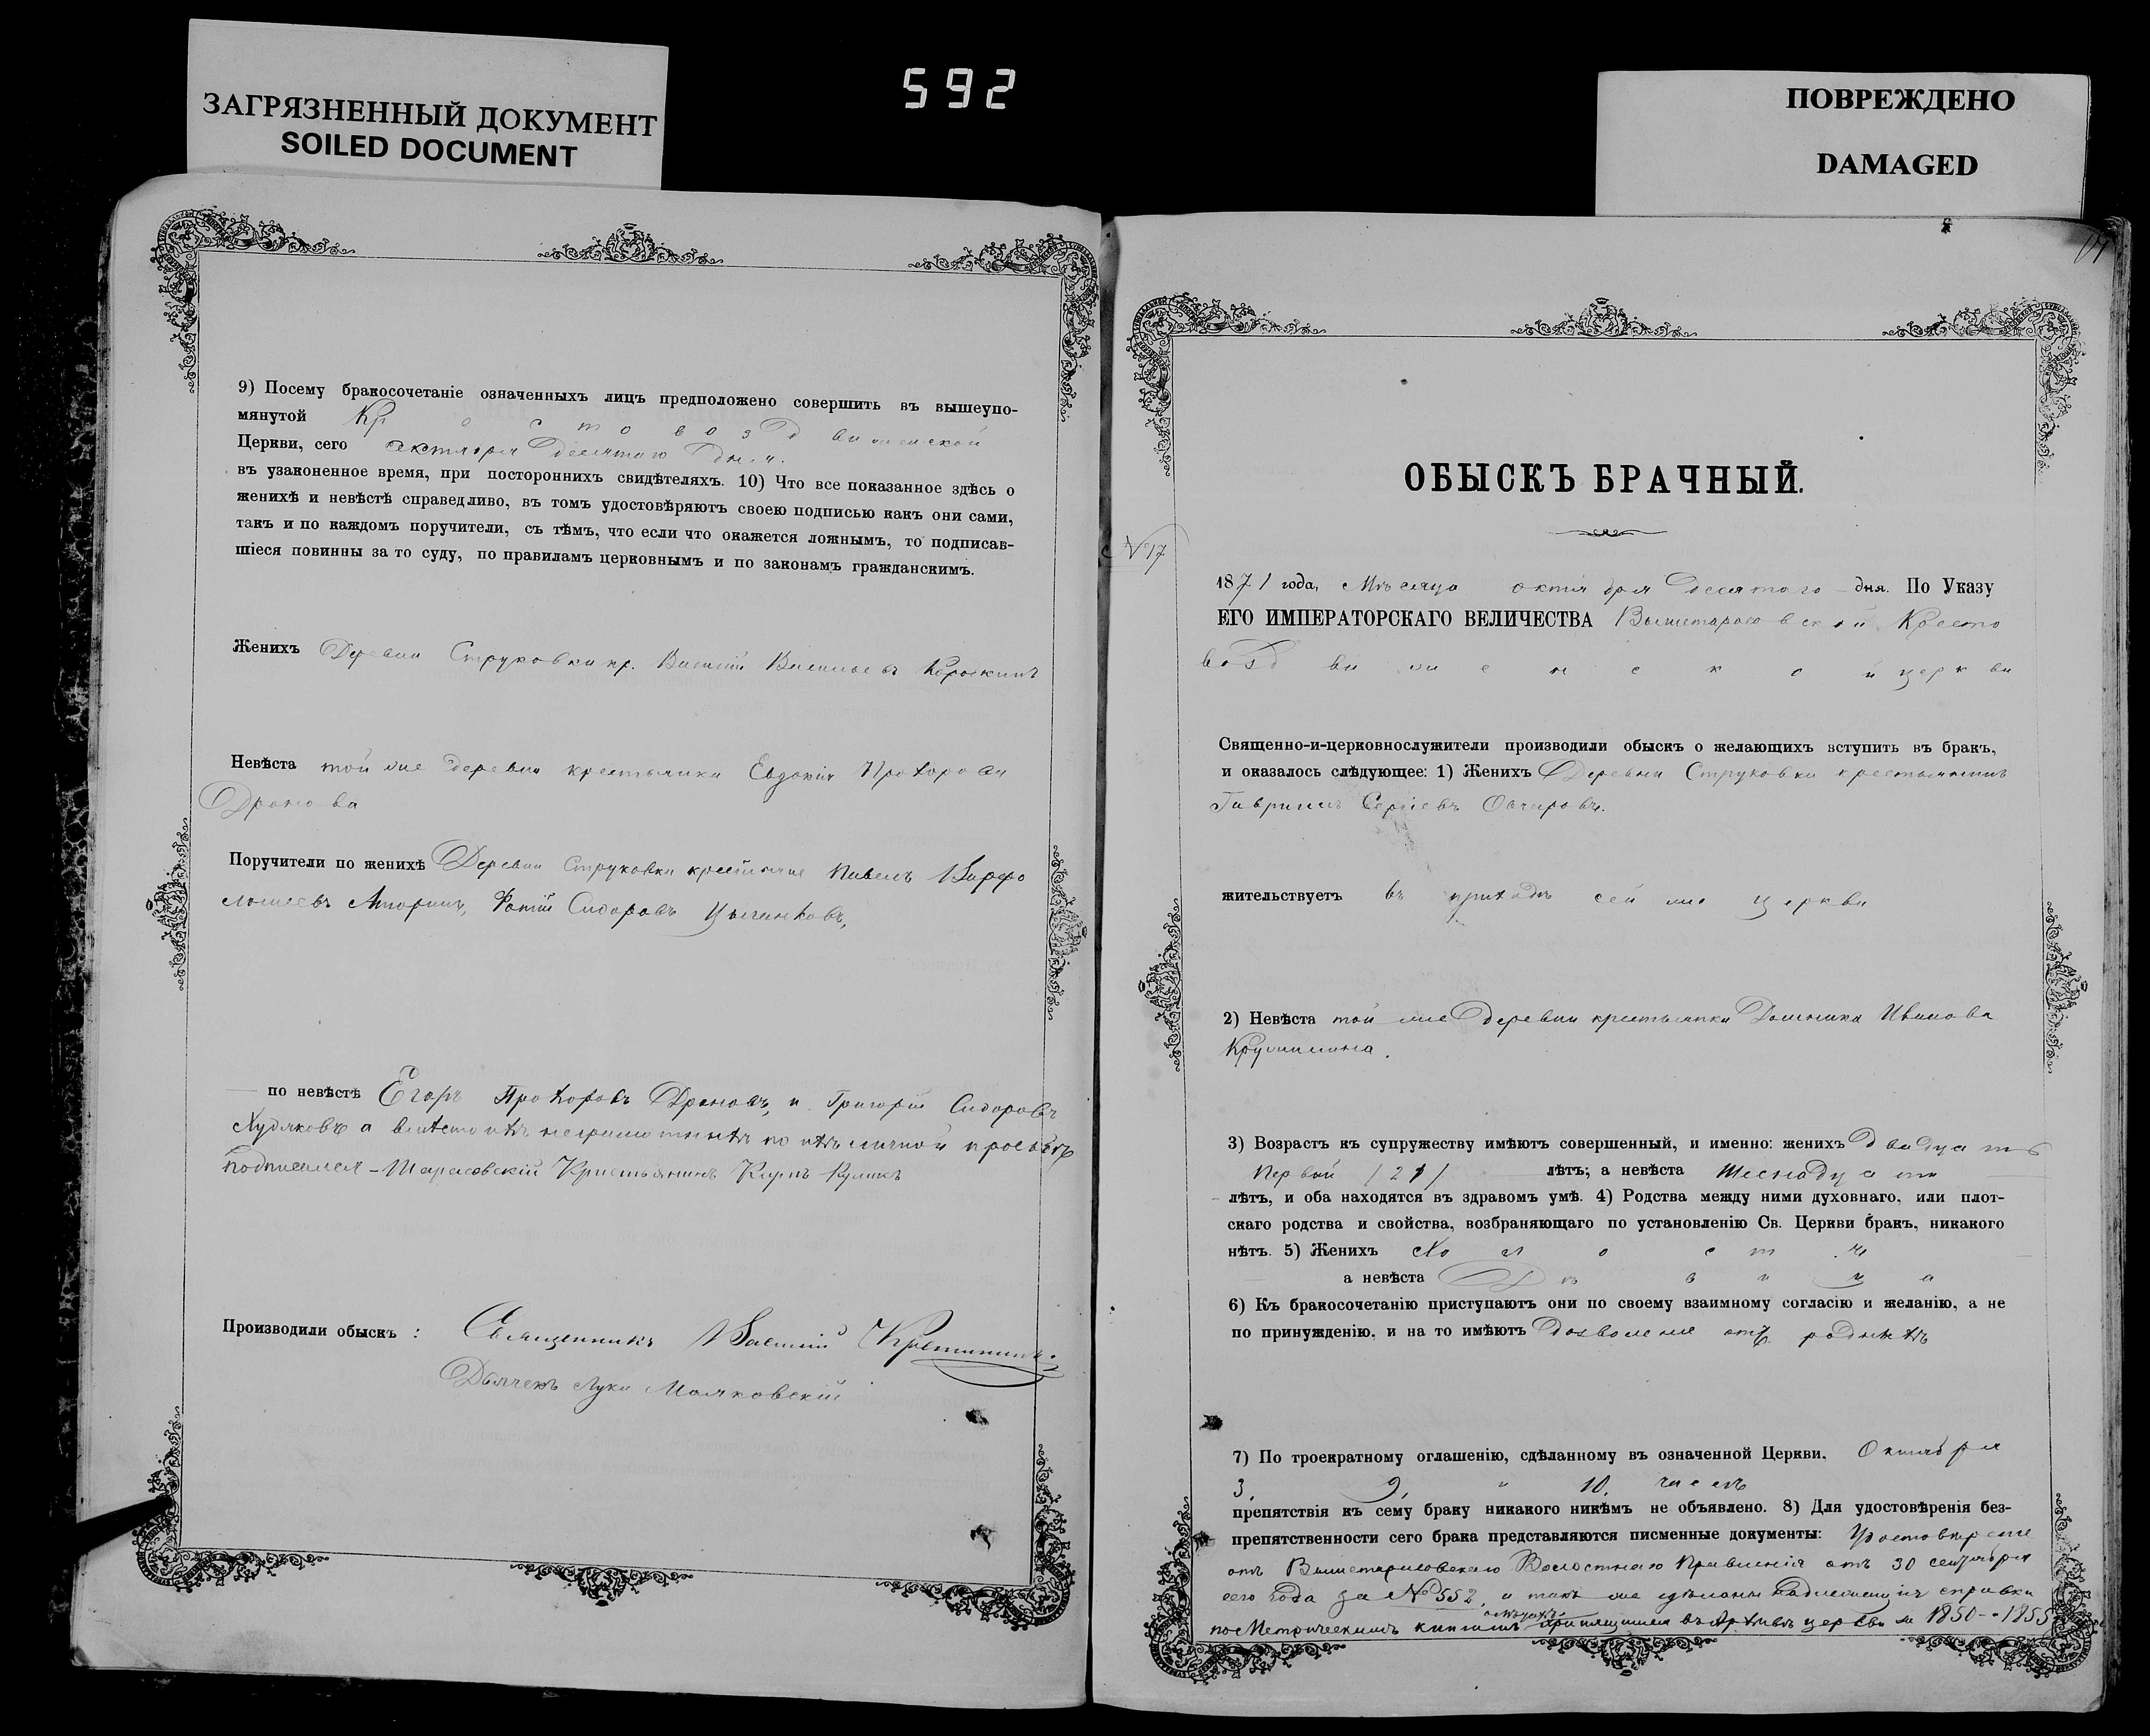 ЗАГРЯЗНЕННЫЙ ДОКУМЕНТ
SOILED DOCUMENT
592
ПОВРЕЖДЕНО
DAMAGED
9) Посему бракосочетаніе означенныхъ лицъ предположено совершить въ вышеупо-
мянутой Крестовоздвиженской
Церкви, сего октября десятаго дня.
въ узаконенное время, при постороннихъ свидѣтеляхъ. 10) Что все показанное здѣсь о
женихѣ и невѣстѣ справедливо, въ томъ удостовѣряютъ своею подписью какъ они сами,
такъ и по каждомъ поручители, съ тѣмъ, что если что окажется ложнымъ, то подписав-
шіеся повинны за то суду, по правиламъ церковнымъ и по законамъ гражданскимъ.
Женихъ Деревни Струковки кр. Василій Васильевъ
Невѣста той же деревни крестьянка Евдокія Прохорова
Дронова
Поручители по женихѣ Деревни Струковки крестьяне Павелъ Варфо
ломеевъ Фотій Сидоровъ Цыганковъ,
— по невѣстѣ Егоръ Прохоровъ Дроновъ, и Григорій Сидоровъ
Худяковъ а вмѣсто ихъ неграмотныхъ по ихъ личной прозьбѣ
подписался - Тарасовскій Крестьянинъ Карпъ Куликъ
Производили обыскъ : Священникъ Василій
Дьячекъ Лука Маляковскій
ОБЫСКЪ БРАЧНЫЙ.
№ 17
1871 года, Мѣсяца октября десятаго дня. По Указу
ЕГО ИМПЕРАТОРСКАГО ВЕЛИЧЕСТВА Вышетарасовской Кресто
воздвиженской церкви
Священно-и-церковнослужители производили обыскъ о желающихъ вступить въ бракъ,
и оказалось слѣдующее: 1) Женихъ Деревни Струковки крестьянинъ
Гавріилъ Сергіевъ Овчаровъ.
жительствуетъ въ приходѣ сей же церкви
2) Невѣста той же деревни крестьянка Домника Иванова
3) Возрастъ къ супружеству имѣютъ совершенный, и именно: женихъ двадцать
первый /21/ лѣтъ; а невѣста шеснадцать
лѣтъ, и оба находятся въ здравомъ умѣ. 4) Родства между ними духовнаго, или плот-
скаго родства и свойства, возбраняющаго по установленію Св. Церкви бракъ, никакого
нѣтъ. 5) Женихъ холостъ
а невѣста дѣвица
6) Къ бракосочетанію приступаютъ они по своему взаимному согласію и желанію, а не
по принужденію, и на то имѣютъ дозволеніе отъ родныхъ
7) По троекратному оглашенію, сдѣланному въ означенной Церкви, Октября
3, 9, и 10, числъ
препятствія къ сему браку никакого никѣмъ не объявлено. 8) Для удостовѣренія без-
препятственности сего брака представляются писменные документы: Удостовѣреніе
отъ Вышетарасовскаго Волостнаго Правленія отъ 30 сентября
сего года за № 552, и такъ же сдѣланы надлежащія справки
по Метрическимъ книгамъ хранящимся въ Архивѣ церкви 1850-1855